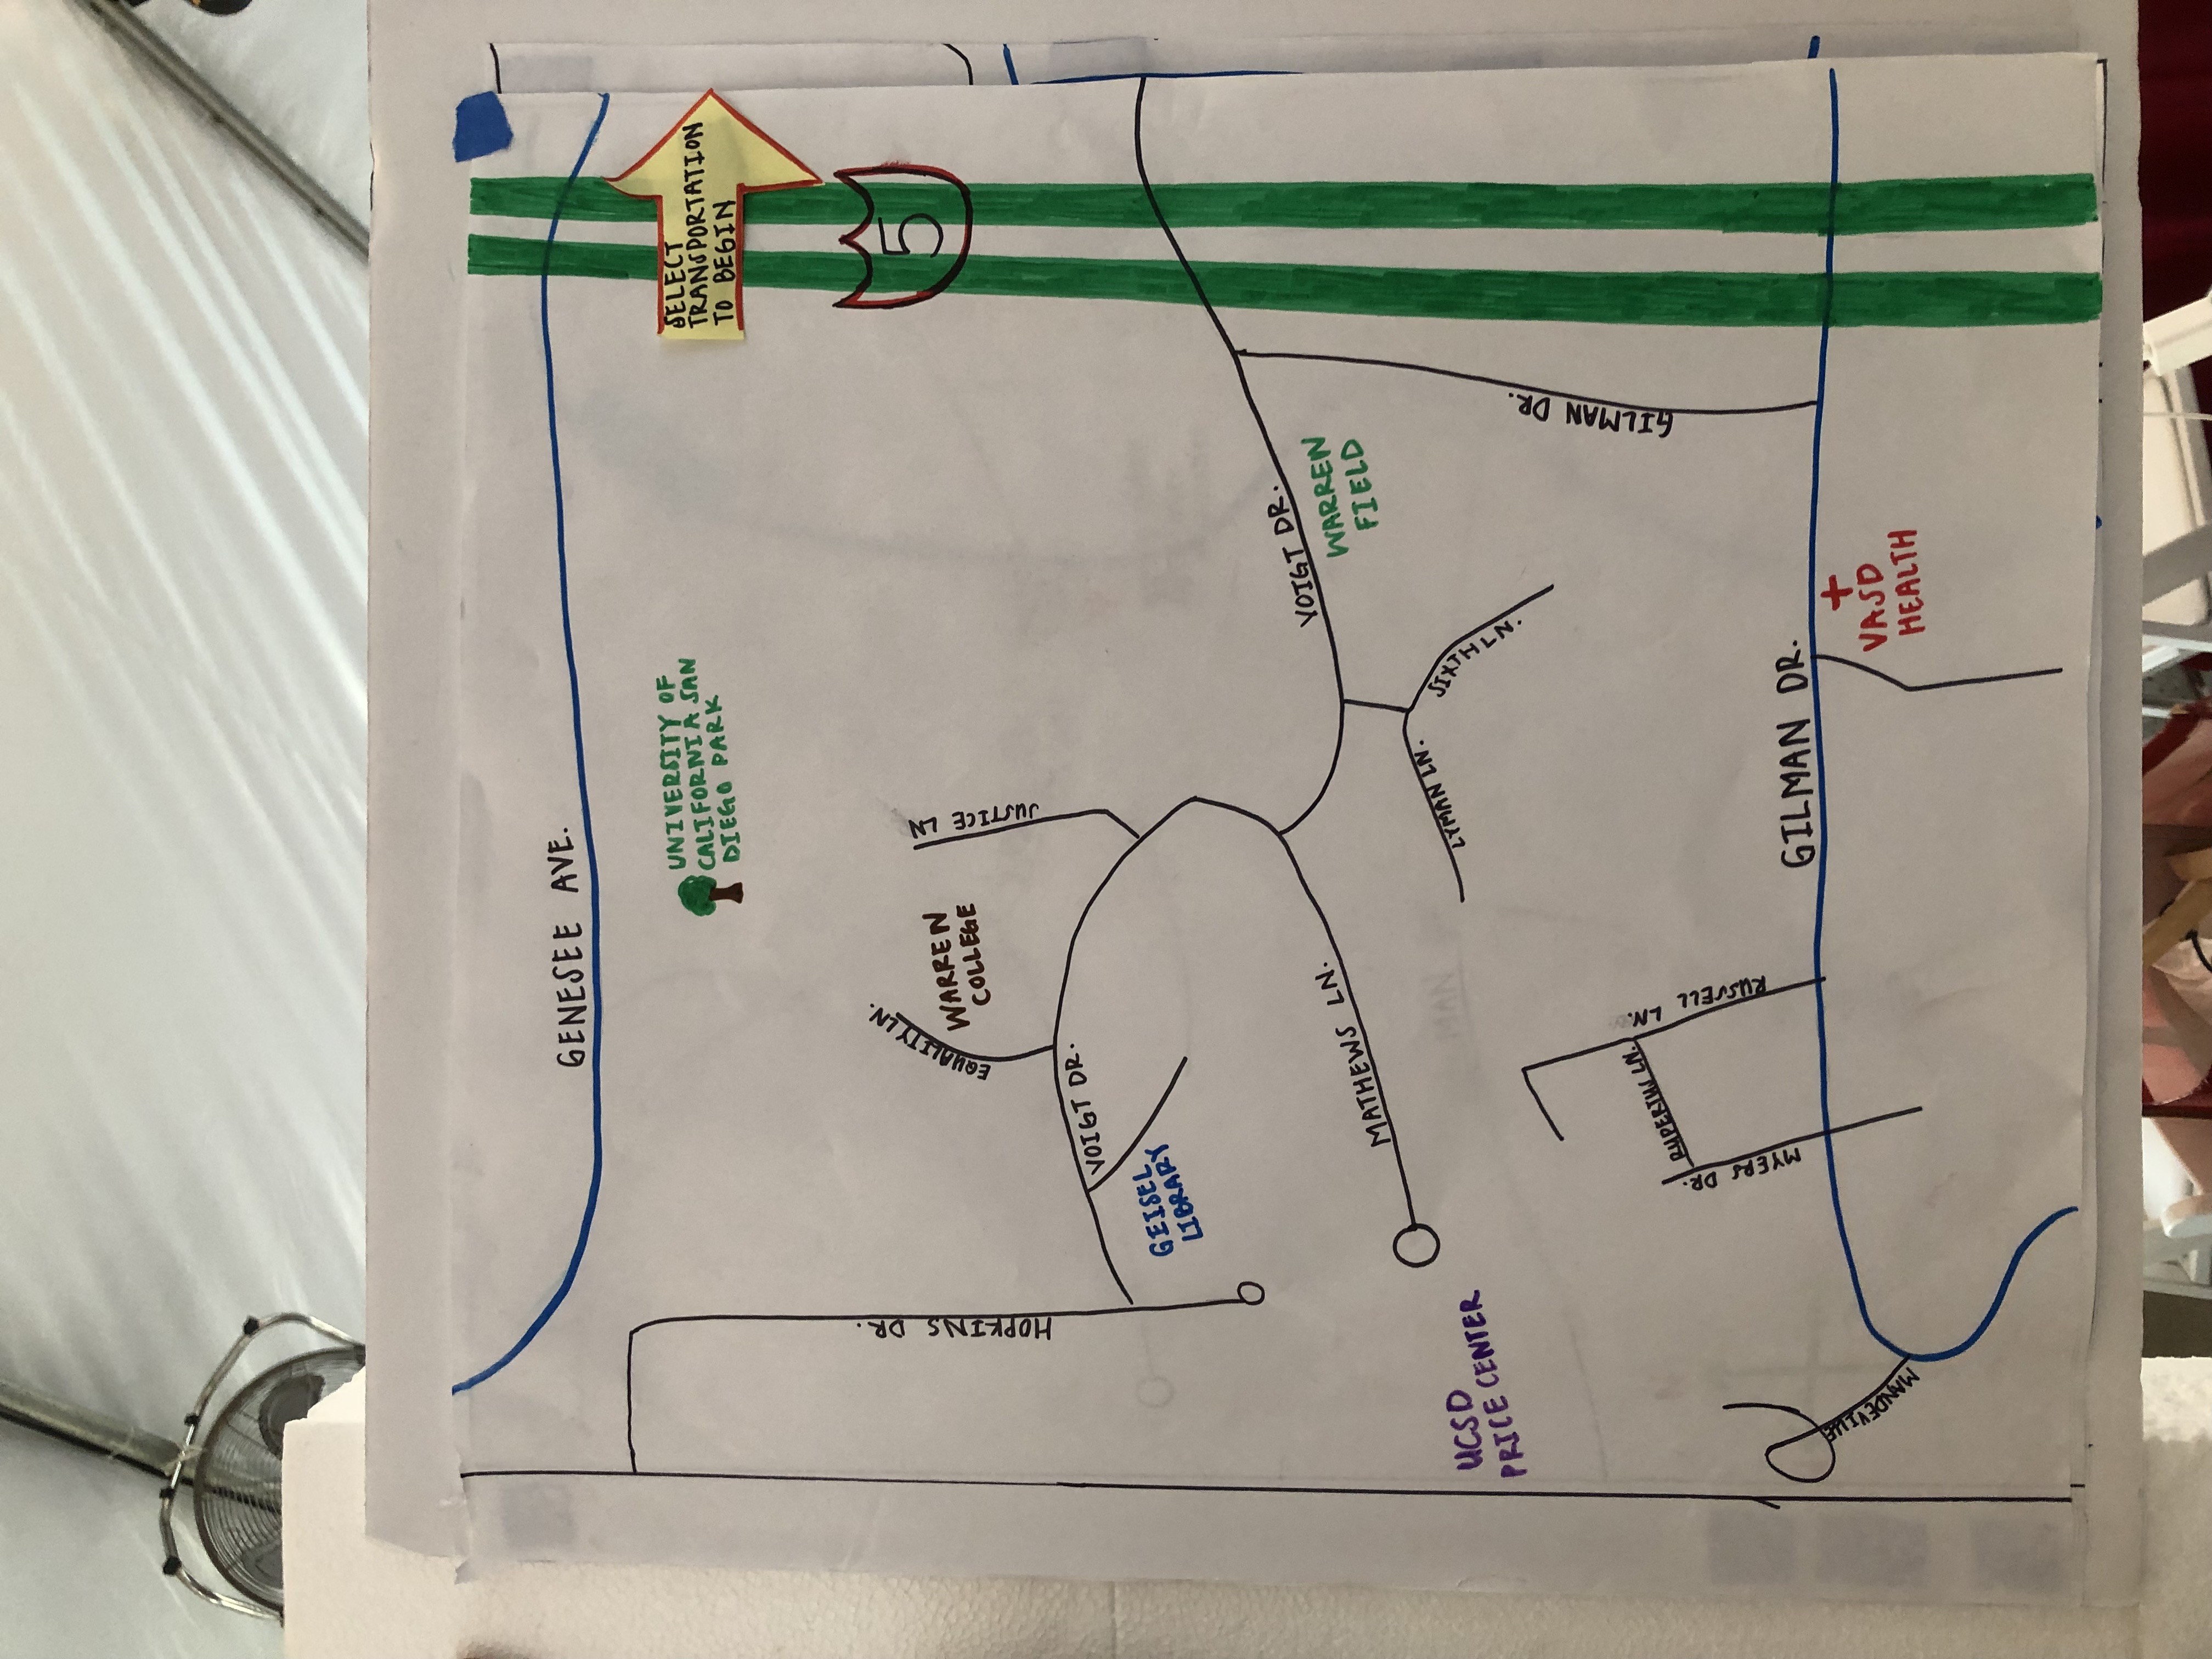 GENESEE AVE.
UNIVERSITY OF
CALIFORNIA SAN
DIEGO PARK
SELECT
TRANSPORTATION
TO BEGIN
5
HOPKINS DR.
EQUALITY LN.
WARREN
COLLEGE
JUSTICE LN
VOIGT DR.
GEISEL
LIBRARY
VOIGT DR.
WARREN
FIELD
MATHEWS LN.
LYMAN LN.
SIXTH LN.
UCSD
PRICE CENTER
GILMAN DR.
RUPERTUS LN.
MYERS DR.
RUSSELL LN.
GILMAN DR.
MANDEVILLE
VASD
HEALTH